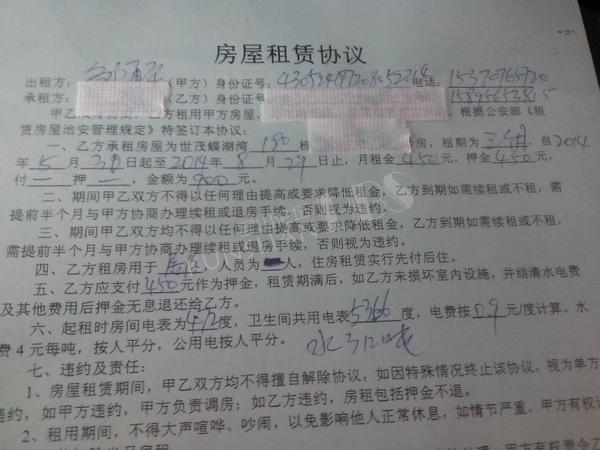 房屋租赁协议
出租方： （甲方）身份证号： 电话：
承租方： （乙方）身份证号：
甲乙 ，乙方租用甲方房屋， ，根据公安部《租
赁房屋治安管理规定》特签订本协议：
一、乙方承租房屋为世茂蝶湖湾 180 栋 房，租期为三个月，自2014
年5月30日起至2014年8月29日止，月租金450元，押金450元，
付一押一，金额为900元。
二、期间甲乙双方不得以任何理由提高或要求降低租金，乙方到期如需续租或不租，需
提前半个月与甲方协商办理续租或退房手续，否则视为违约。
三、期间甲乙双方均不得以任何理由提高或要求降低租金，乙方到期如需续租或不租，
需提前半个月与甲方协商办理续租或退房手续，否则视为违约。
四、乙方租房用于居住，人员为 人，住房租赁实行先付后住。
五、乙方应支付450元作为押金，租赁期满后，如乙方未损坏室内设施，并结清水电费
及其他费用后押金无息退还给乙方。
六、起租时房间电表为 度，卫生间共用电表5366度，电费按0.9元/度计算，水
费4元每吨，按人平分，公用电按人平分。
水 吨
七、违约及责任：
1、房屋租赁期间，甲乙双方均不得擅自解除协议，如因特殊情况终止该协议，视为单方
违约，如甲方违约，甲方负责调房；如乙方违约，房租包括押金不退。
2、租用期间，不得大声喧哗、吵闹，以免影响他人正常休息，如情节严重，甲方有权